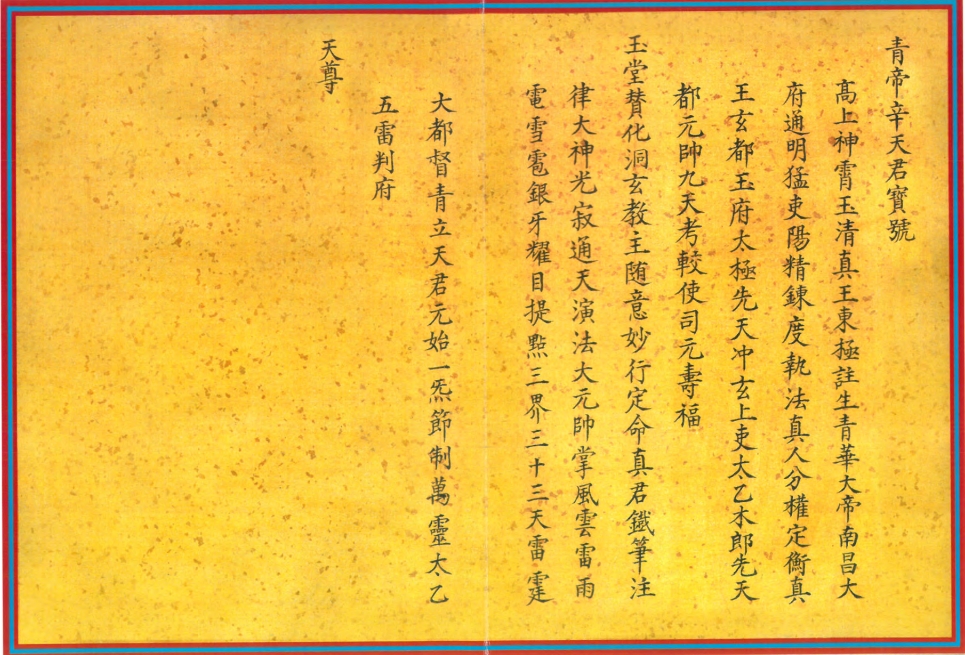 青帝辛天君寶號
高上神霄玉清真王東極註生青華大帝南昌大
府通明猛吏陽精鍊度執法真人分權定衡真
王玄都玉府太極先天冲玄上吏太乙木郎先天
都元帥九天考較使司元壽福
玉堂賛化洞玄教主随意妙行定命真君鐵筆注
律大神光寂通天演法大元帥掌風雲雷雨
電雪雹銀牙耀目提點三界三十三天雷霆
大都督青立天君元始一炁節制萬靈太乙
五雷判府
天尊